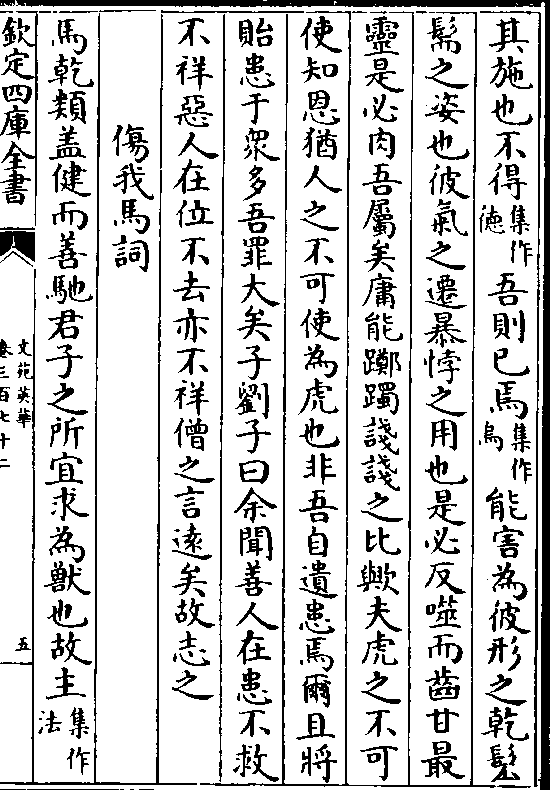 其施也不得集作德吾則已焉集作烏能害為彼形之乾髤
髵之姿也彼氣之遷暴悖之用也是必反噬而齒甘最
靈是必肉吾屬矣庸能躑躅諓諓之比歟夫虎之不可
使知恩猶人之不可使為虎也非吾自遺患焉爾且將
貽患于眾多吾罪大矣子劉子曰余聞善人在患不救
不祥惡人在位不去亦不祥僧之言遠矣故志之
傷我馬詞
馬乾類盖健而善馳君子之所宜求為獸也故主集作法
欽定四庫全書
文苑英華
卷三百七十二
五